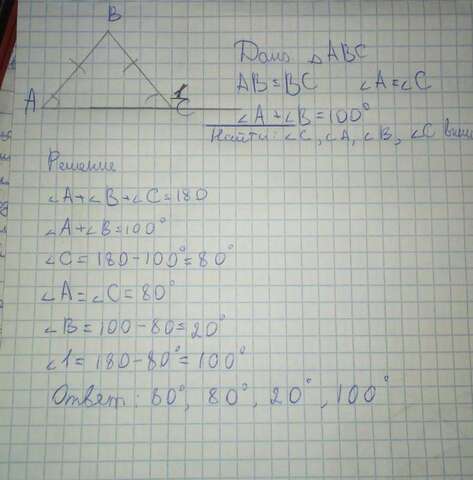 B
A
1
C
Дано △ABC
AB=BC ∠A=∠C
∠A+∠B=100°
Найти: ∠C, ∠A, ∠B, ∠C внеш
Решение
∠A+∠B+∠C=180
∠A+∠B=100°
∠C=180-100°=80°
∠A=∠C=80°
∠B=100-80=20°
∠1=180-80°=100°
Ответ: 80°, 80°, 20°, 100°